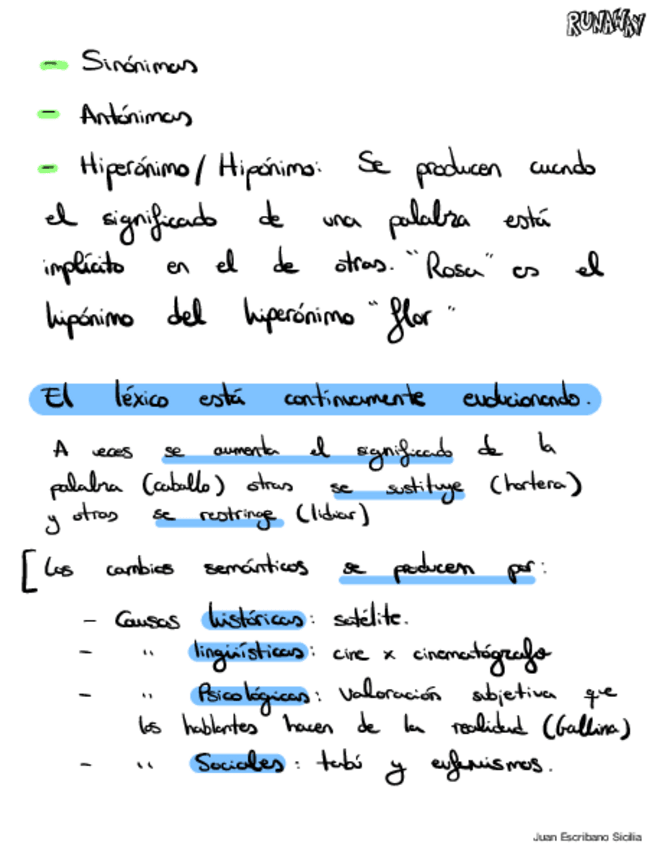 RUNAWAY
- Sinónimas
- Antónimas
- Hiperónimo / Hipónimo: Se producen cuando
el significado de una palabra está
implícito en el de otras. "Rosa" es el
hipónimo del hiperónimo "flor"
El léxico está continuamente evolucionando.
A veces se aumenta el significado de la
palabra (caballo) otras se sustituye (hortera)
y otras se restringe (lidiar)
[ Los cambios semánticos se producen por:
- Causas históricas: satélite.
- " lingüísticas: cine x cinematógrafo
- " Psicológicas: Valoración subjetiva que
los hablantes hacen de la realidad (Gallina)
- " Sociales: tabú y eufemismos.
Juan Escribano Sicilia